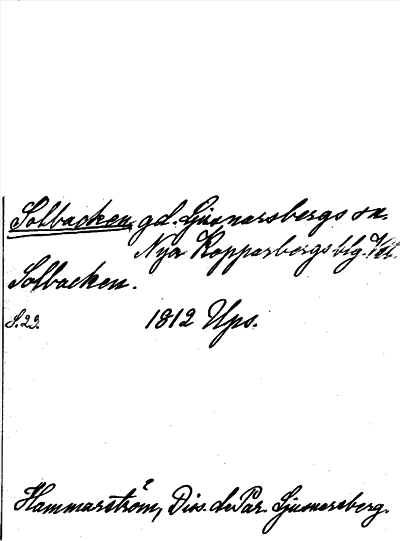 Solbacken, gd. Ljusnarsbergs sn.
Nya Kopparbergs blg. Vstl.
Solbacken.
S. 23. 1812 Ups.
Hammarström, Dis. de Par. Ljusnersberg.